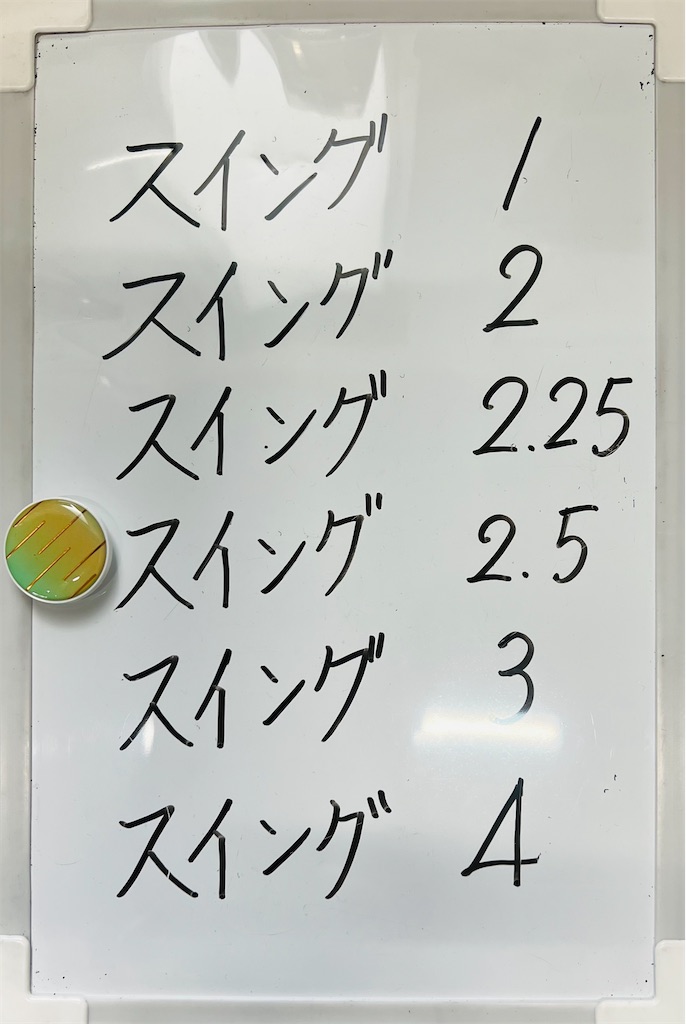 スイング 1
スイング 2
スイング 2.25
スイング 2.5
スイング 3
スイング 4